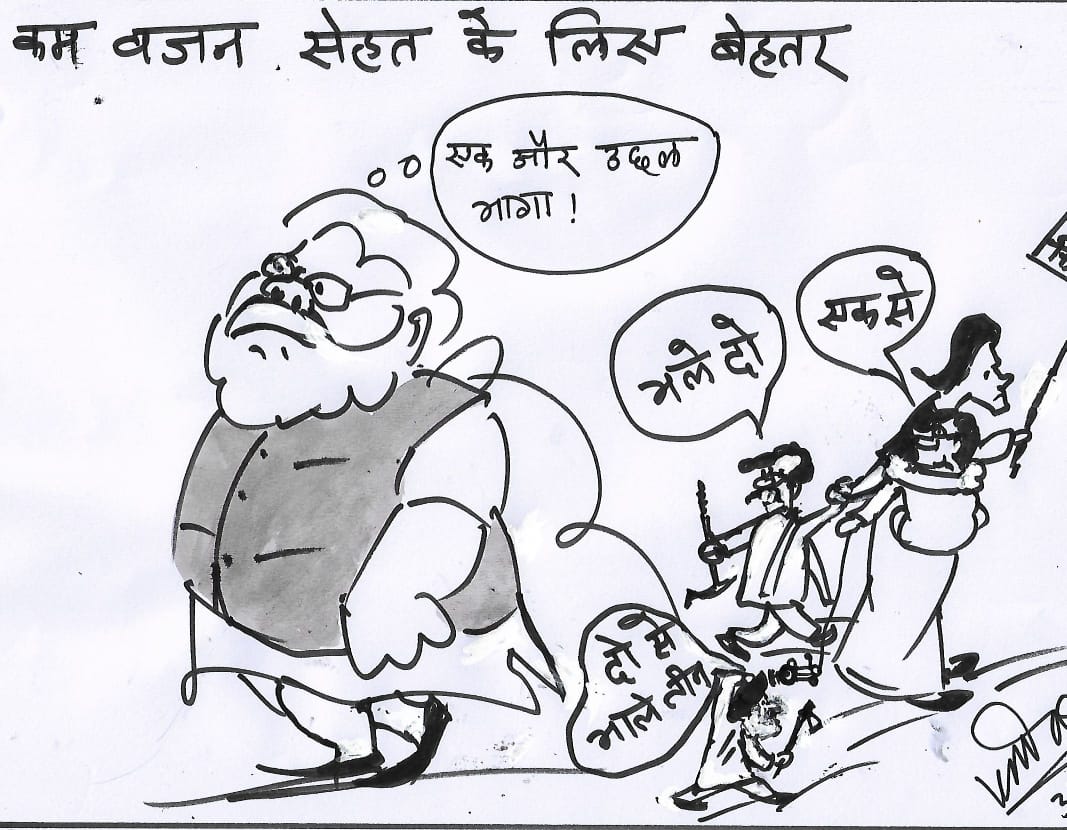 कम वजन. सेहत के लिए बेहतर
एक और उछल
भागा!
एक से
भले दो
दो से
भले तीन